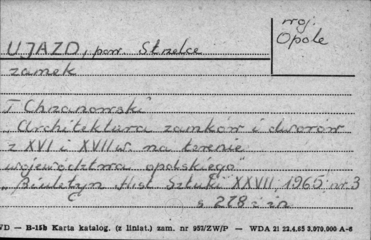 woj.
Opole
UJAZD, pow. Strzelce
zamek
T. Chrzanowski
"Architektura zamków i dworów
z XVI i XVII w. na terenie
województwa opolskiego"
"Biuletyn Hist. Sztuki" XXVII, 1965, nr 3
s. 278 i n.
WD — B-15b Karta katalog. (z liniat.) zam. nr 957/ZW/P — WDA 21 22.4.65 3.970.000 A-6